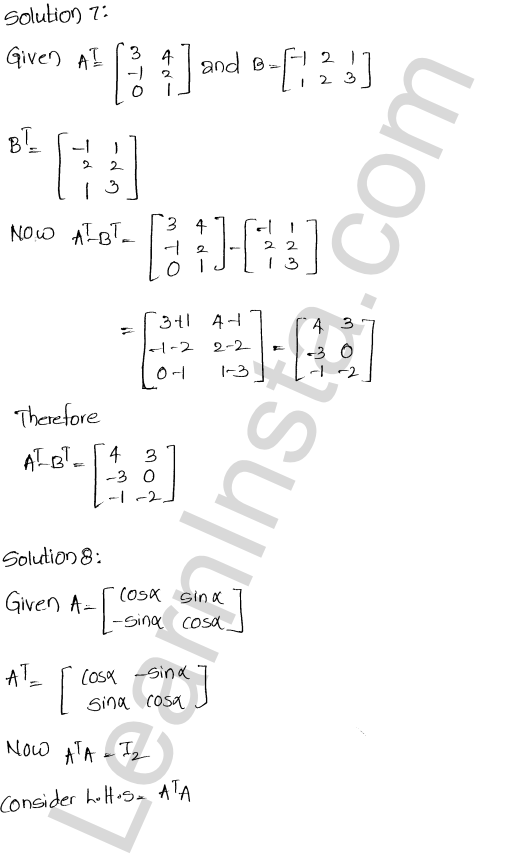 Solution 7:
Given Aᵀ= [3 4; -1 2; 0 1] and B= [-1 2 1; 1 2 3]
Bᵀ= [-1 1; 2 2; 1 3]
Now Aᵀ-Bᵀ= [3 4; -1 2; 0 1] - [-1 1; 2 2; 1 3]
= [3+1 4-1; -1-2 2-2; 0-1 1-3] = [4 3; -3 0; -1 -2]
Therefore
Aᵀ-Bᵀ= [4 3; -3 0; -1 -2]
Solution 8:
Given A= [cosα sinα; -sinα cosα]
Aᵀ= [cosα -sinα; sinα cosα]
Now AᵀA = I₂
Consider L.H.S= AᵀA
LearnInsta.com